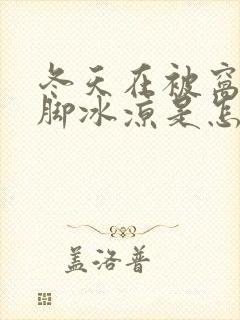 冬天在被窝
脚冰凉是怎
盖洛普